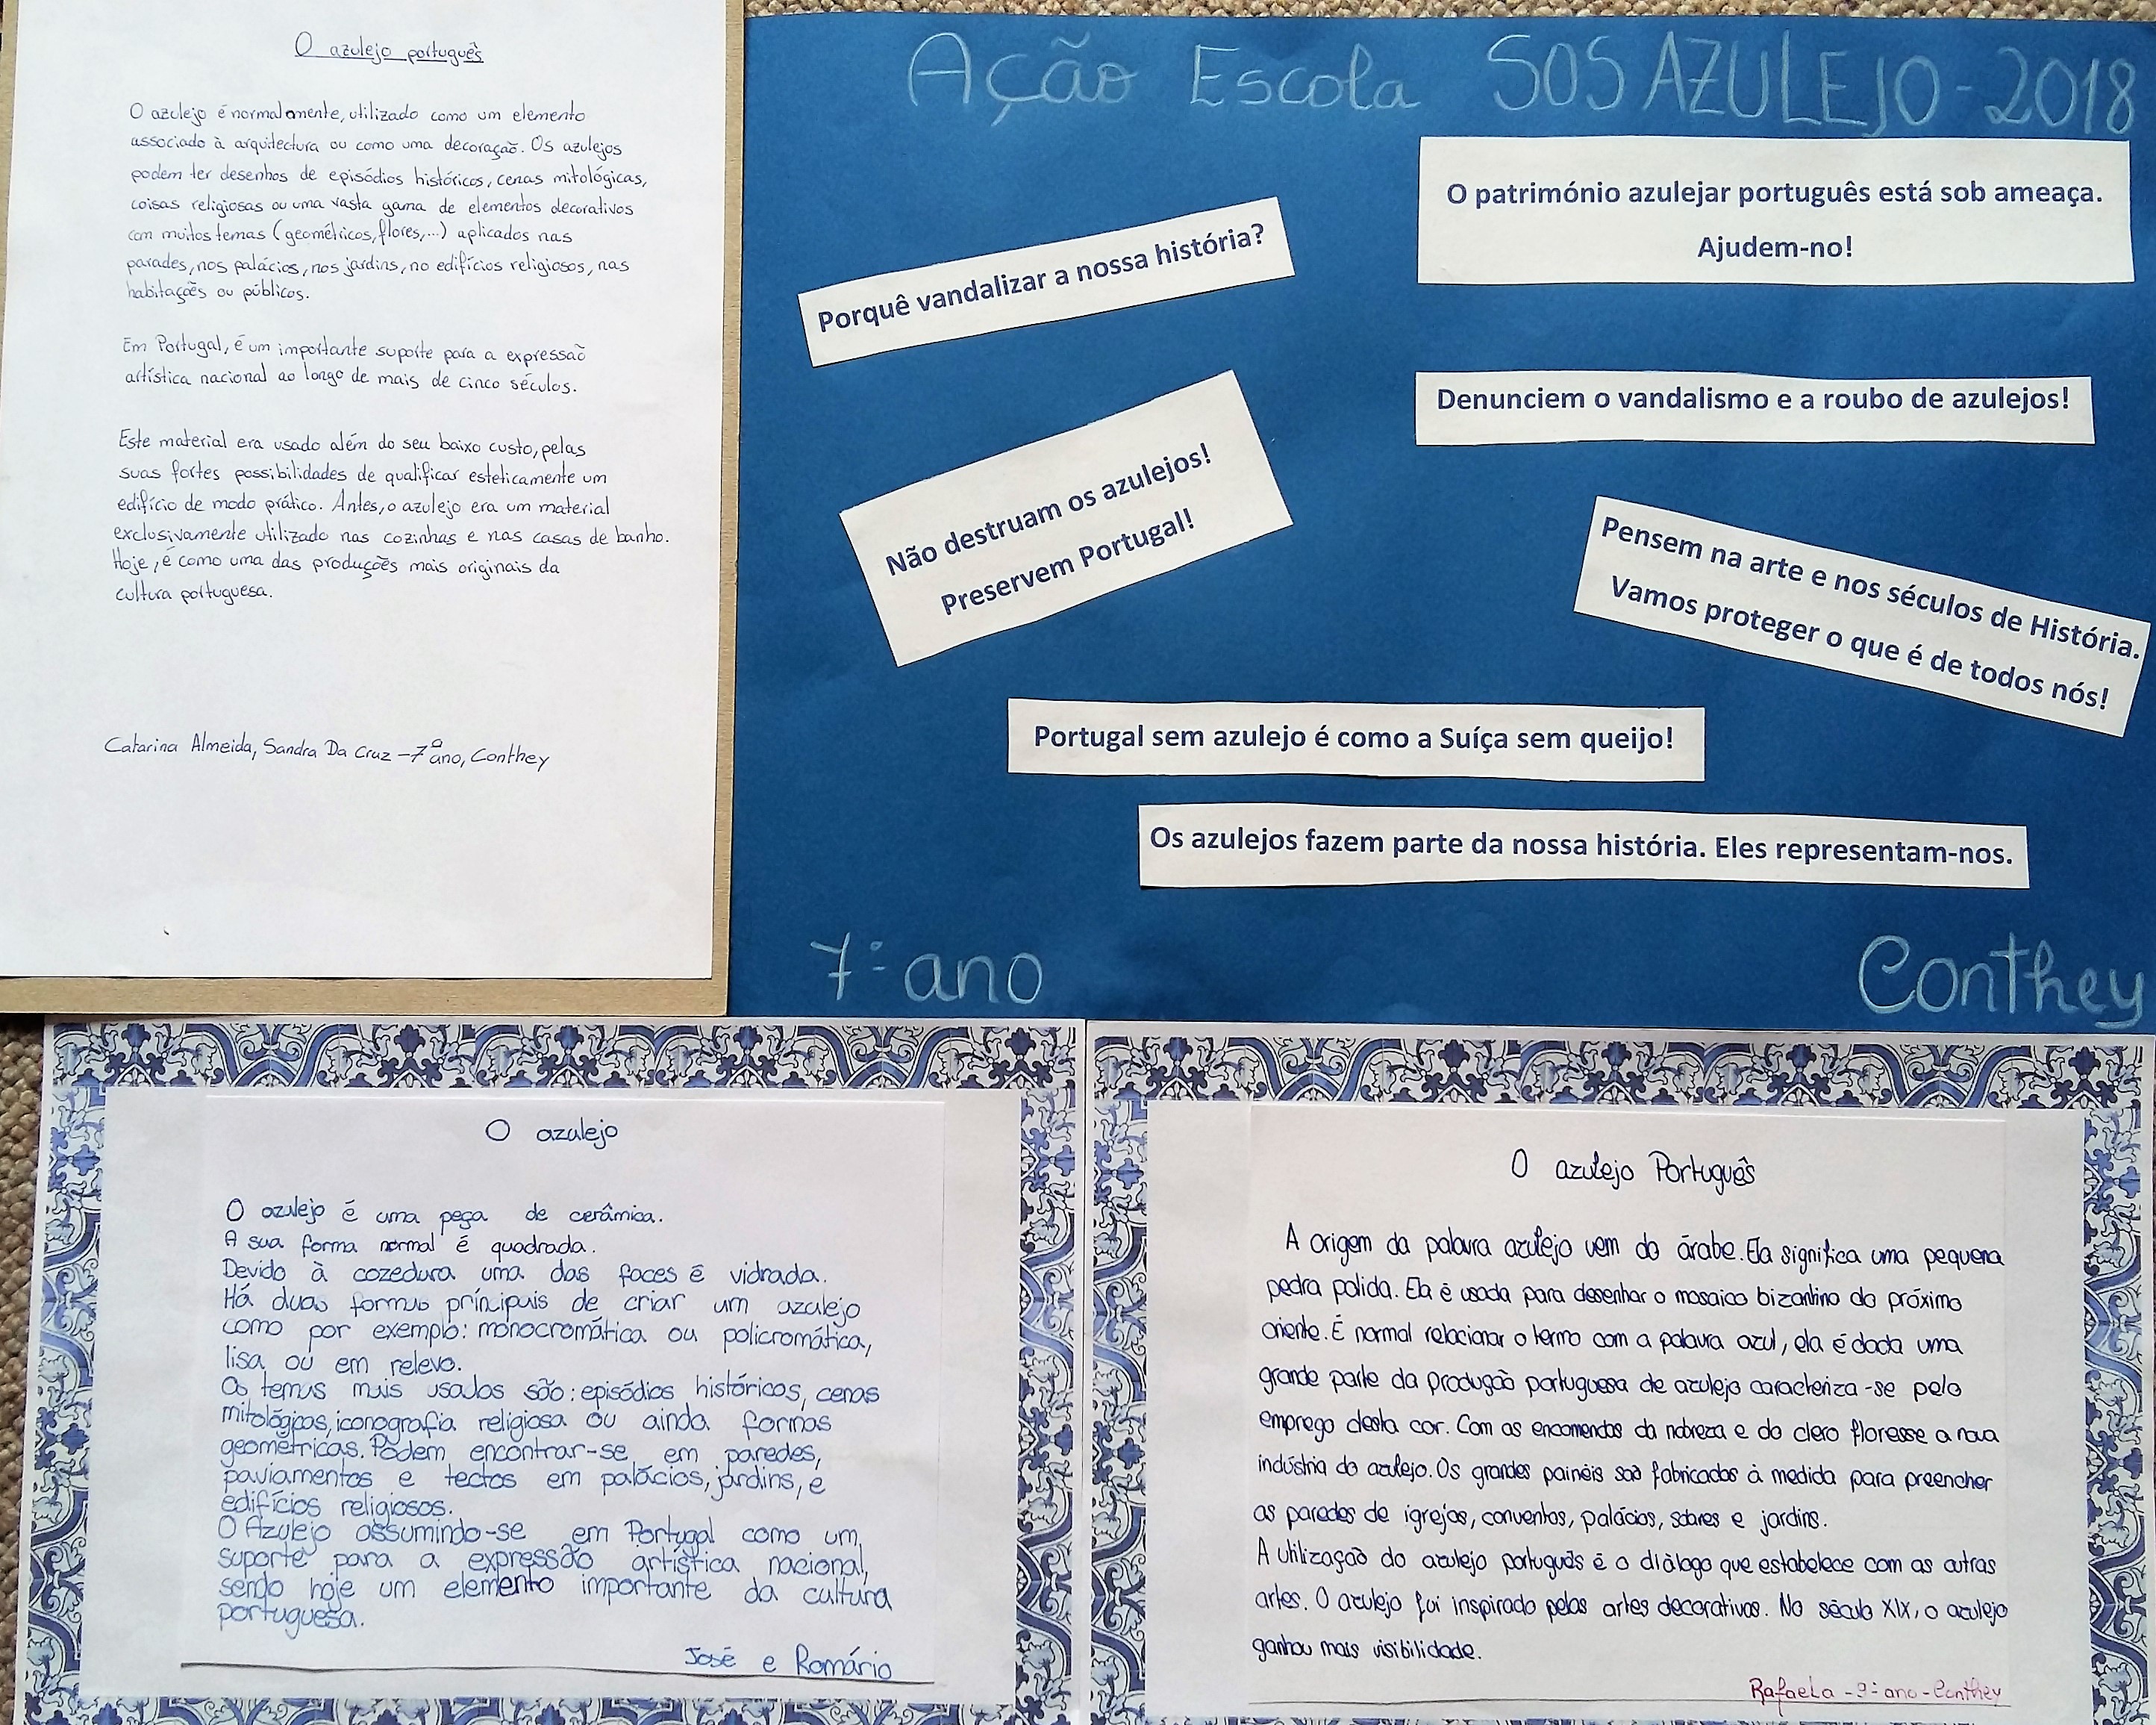 O azulejo português
O azulejo é normalmente, utilizado como um elemento
associado à arquitectura ou como uma decoração. Os azulejos
podem ter desenhos de episódios históricos, cenas mitológicas,
coisas religiosas ou uma vasta gama de elementos decorativos
com muitos temas (geométricos, flores,...) aplicados nas
parades, nos palácios, nos jardins, no edifícios religiosos, nas
habitações ou públicos.
Em Portugal, é um importante suporte para a expressão
artística nacional ao longo de mais de cinco séculos.
Este material era usado além do seu baixo custo, pelas
suas fortes possibilidades de qualificar esteticamente um
edifício de modo prático. Antes, o azulejo era um material
exclusivamente utilizado nas cozinhas e nas casas de banho.
Hoje, é como uma das produções mais originais da
cultura portuguesa.
Catarina Almeida, Sandra Da Cruz - 7º ano, Conthey
Ação Escola SOS AZULEJO - 2018
O património azulejar português está sob ameaça.
Ajudem-no!
Porquê vandalizar a nossa história?
Denunciem o vandalismo e a roubo de azulejos!
Não destruam os azulejos!
Preservem Portugal!
Pensem na arte e nos séculos de História.
Vamos proteger o que é de todos nós!
Portugal sem azulejo é como a Suíça sem queijo!
Os azulejos fazem parte da nossa história. Eles representam-nos.
7º ano
Conthey
O azulejo
O azulejo é uma peça de cerâmica.
A sua forma normal é quadrada.
Devido à cozedura uma das faces é vidrada.
Há duas formas principais de criar um azulejo
como por exemplo: monocromática ou policromática,
lisa ou em relevo.
Os temas mais usados são: episódios históricos, cenas
mitológicas, iconografia religiosa ou ainda formas
geométricas. Podem encontrar-se em paredes,
paviamentos e tectos em palácios, jardins, e
edifícios religiosos.
O Azulejo assumindo-se em Portugal como um,
suporte para a expressão artística nacional,
sendo hoje um elemento importante da cultura
portuguesa.
José e Romário
O azulejo Português
A origem da palavra azulejo vem do árabe. Ela significa uma pequena
pedra polida. Ela é usada para desenhar o mosaico bizantino do próximo
oriente. É normal relacionar o termo com a palavra azul, ela é dada uma
grande parte da produção portuguesa de azulejo caracteriza-se pelo
emprego desta cor. Com as encomendas da nobreza e do clero floresse a nova
indústria do azulejo. Os grandes painéis são fabricados à medida para preencher
as paredes de igrejas, conventos, palácios, solares e jardins.
A utilização do azulejo português é o diàlogo que estabelece com as outras
artes. O azulejo foi inspirado pelas artes decorativas. No século XIX, o azulejo
ganhou mais visibilidade.
Rafaela - 9º ano - Conthey